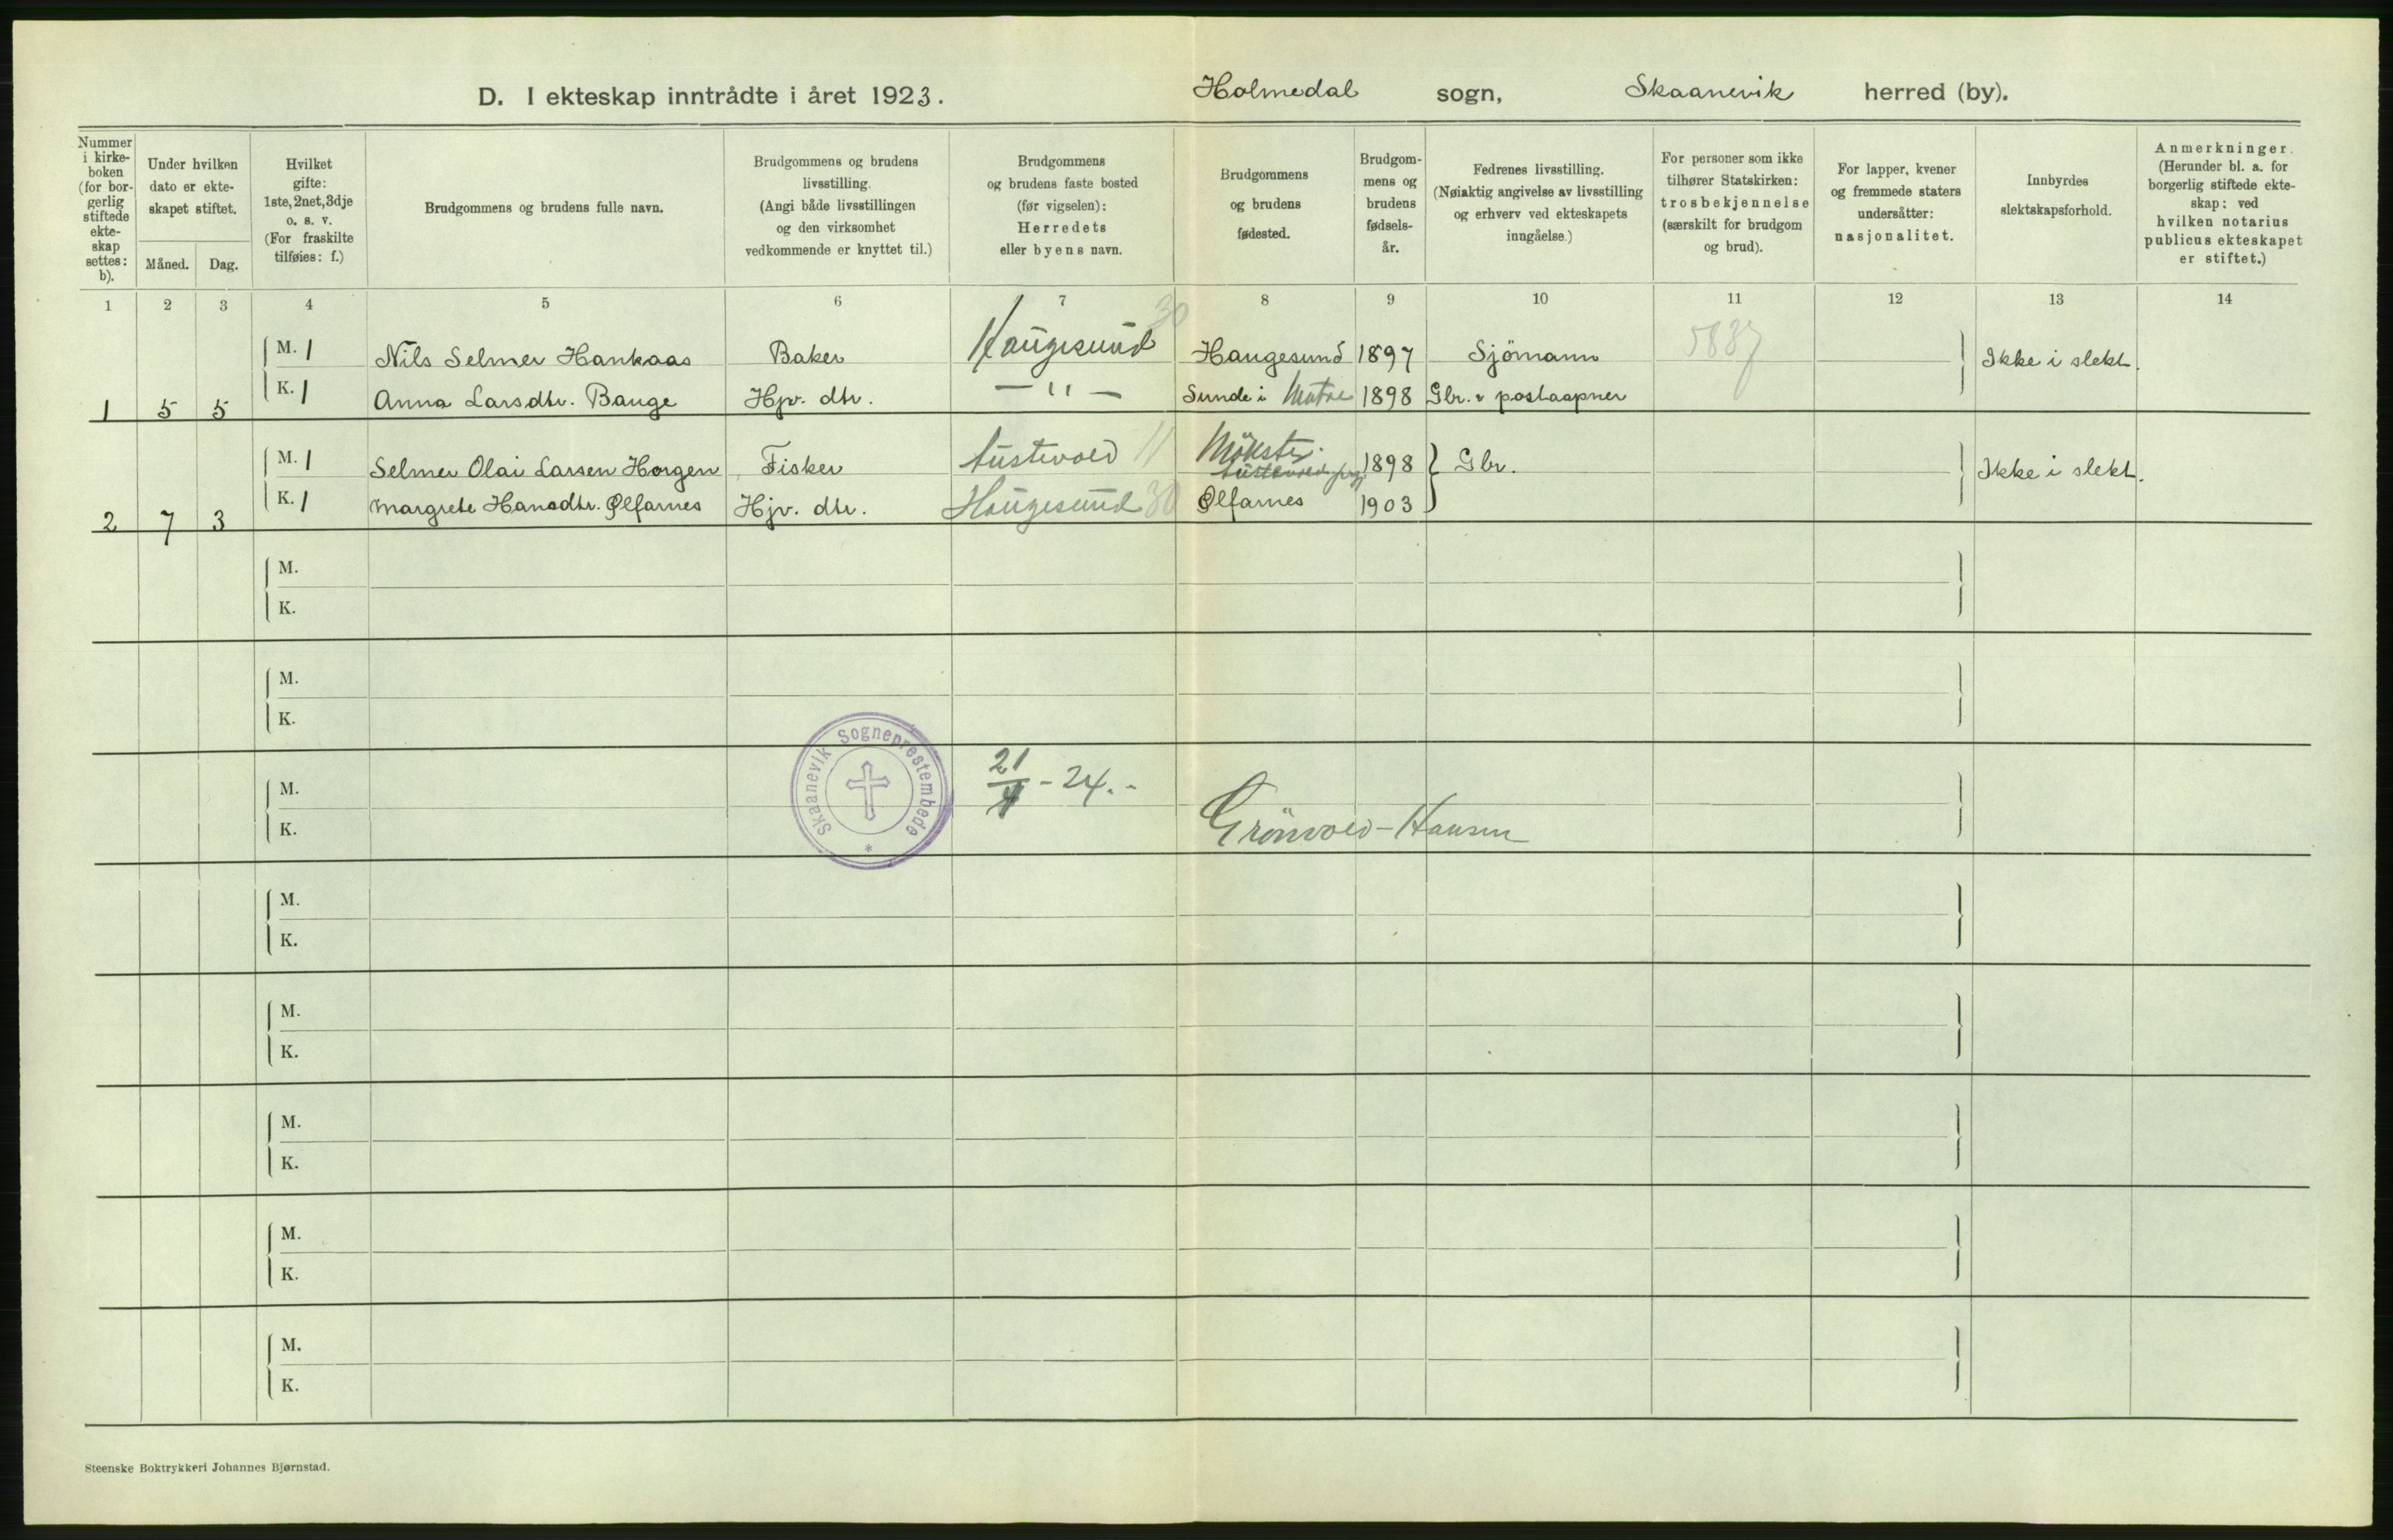 D. I ekteskap inntrådte i året 1923. Holmedal sogn, Skaanevik herred (by).
Nummer
i kirke-
boken
(for bor-
gerlig
stiftede
ekte-
skap
settes:
b).
Under hvilken
dato er ekte-
skapet stiftet.
Måned. Dag.
Hvilket
gifte:
1ste, 2net, 3dje
o. s. v.
(For fraskilte
tilføies: f.)
Brudgommens og brudens fulle navn.
Brudgommens og brudens
livsstilling.
(Angi både livsstillingen
og den virksomhet
vedkommende er knyttet til.)
Brudgommens
og brudens faste bosted
(før vigselen):
Herredets
eller byens navn.
Brudgommens
og brudens
fødested.
Brudgom-
mens og
brudens
fødsels-
år.
Fedrenes livsstilling.
(Nøiaktig angivelse av livsstilling
og erhverv ved ekteskapets
inngåelse.)
For personer som ikke
tilhører Statskirken:
trosbekjennelse
(særskilt for brudgom
og brud).
For lapper, kvener
og fremmede staters
undersåtter:
nasjonalitet.
Innbyrdes
slektskapsforhold.
Anmerkninger.
(Herunder bl. a. for
borgerlig stiftede ekte-
skap: ved
hvilken notarius
publicus ekteskapet
er stiftet.)
1 2 3 4 5 6 7 8 9 10 11 12 13 14
M. 1 Nils Selmer Hankaas Baker Haugesund 30 Haugesund 1897 Sjömann Ikke i slekt.
1 5 5 K. 1 Anna Larsdtr. Bauge Hjv. dtr. — " — Sunde i Matre 1898 Gbr. & postaapner
M. 1 Selmer Olai Larsen Horgen Fisker Austevold 11 Mökster Austevold 1898 Gbr. Ikke i slekt.
2 7 3 K. 1 Margrete Hansdtr. Ølfarnes Hjv. dtr. Haugesund 30 Ølfarnes 1903
M.
K.
M.
K.
Skaanevik Sogneprestembede
*
21/4 - 24. -
Grönvold-Hansen
M.
K.
M.
K.
M.
K.
M.
K.
M.
K.
M.
K.
Steenske Boktrykkeri Johannes Bjørnstad.